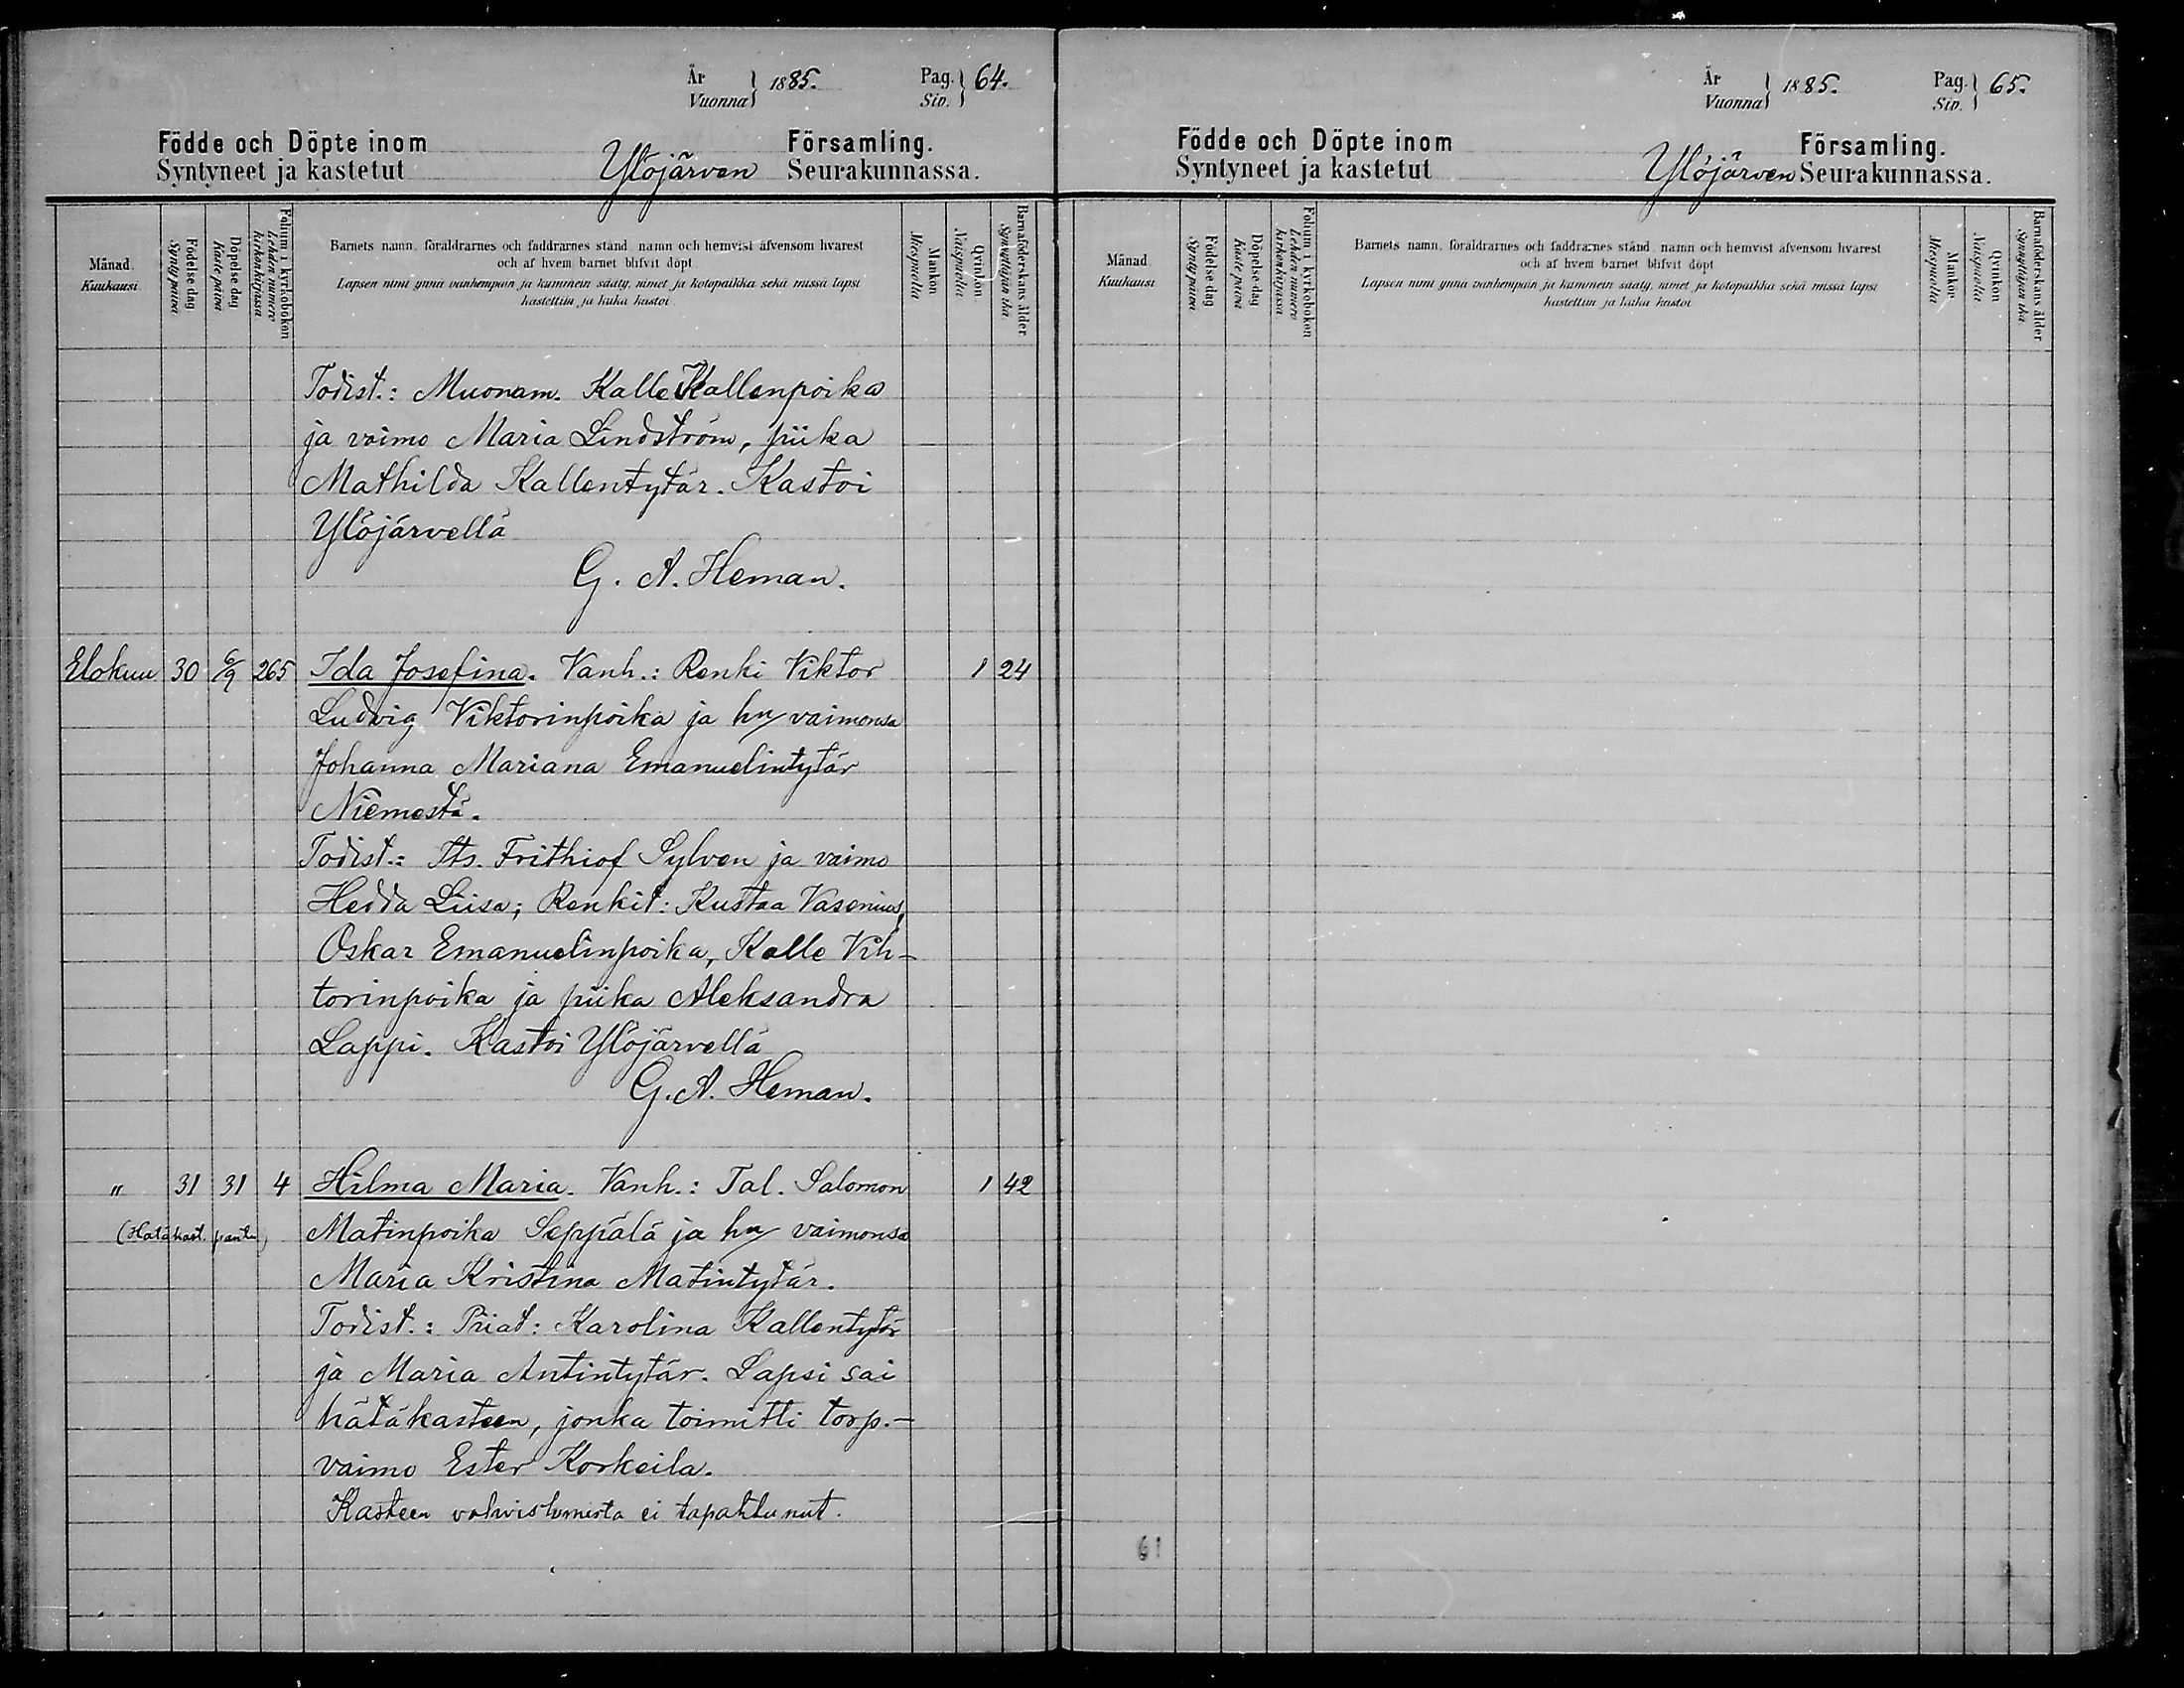 År
Vuonna } 1885.
Pag.
Siv. } 64.
Födde och Döpte inom Församling.
Syntyneet ja kastetut Ylöjärven Seurakunnassa.
Månad
Kuukausi
Födelse dag
Synty päivä
Döpelse dag
Kaste päivä
Folium i kyrkoboken
Lehden numero
kirkonkirjassa
Barnets namn, föräldrarnes och faddrarnes stånd, namn och hemvist äfvensom hvarest
och af hvem barnet blifvit döpt
Lapsen nimi ynnä vanhempain ja kummein sääty, nimet ja kotopaikka sekä missä lapsi
kastettiin ja kuka kastoi
Mankön
Miespuolia
Qvinkön
Naispuolia
Barnaföderskans ålder
Synnyttäjän ikä
Todist.: Muonam. Kalle Kallenpoika
ja vaimo Maria Lindström, piika
Mathilda Kallentytär. Kastoi
Ylöjärvellä
G. A. Heman.
Elokuu 30 6/9 265 Ida Josefina. Vanh.: Renki Viktor 1 24
Ludvig Viktorinpoika ja hn vaimonsa
Johanna Mariana Emanuelintytär
Niemestä.
Todist.: Its. Frithiof Sylven ja vaimo
Hedda Liisa; Renkit: Kustaa Vasenius,
Oskar Emanuelinpoika, Kalle Vih-
torinpoika ja piika Aleksandra
Lappi. Kastoi Ylöjärvellä
G. A. Heman.
" 31 31 4 Hilma Maria. Vanh.: Tal. Salomon 1 42
(Hätäkast. pantu) Matinpoika Seppälä ja hn vaimonsa
Maria Kristina Matintytär.
Todist.: Piiat: Karolina Kallentytär
ja Maria Antintytär. Lapsi sai
hätäkasteen, jonka toimitti torp.-
vaimo Ester Korkeila.
Kasteen vahvistumista ei tapahtunut.
År
Vuonna } 1885.
Pag.
Siv. } 65.
Födde och Döpte inom Församling.
Syntyneet ja kastetut Ylöjärven Seurakunnassa.
Månad
Kuukausi
Födelse dag
Synty päivä
Döpelse dag
Kaste päivä
Folium i kyrkoboken
Lehden numero
kirkonkirjassa
Barnets namn, föräldrarnes och faddrarnes stånd, namn och hemvist äfvensom hvarest
och af hvem barnet blifvit döpt
Lapsen nimi ynnä vanhempain ja kummein sääty, nimet ja kotopaikka sekä missä lapsi
kastettiin ja kuka kastoi
Mankön
Miespuolia
Qvinkön
Naispuolia
Barnaföderskans ålder
Synnyttäjän ikä
61